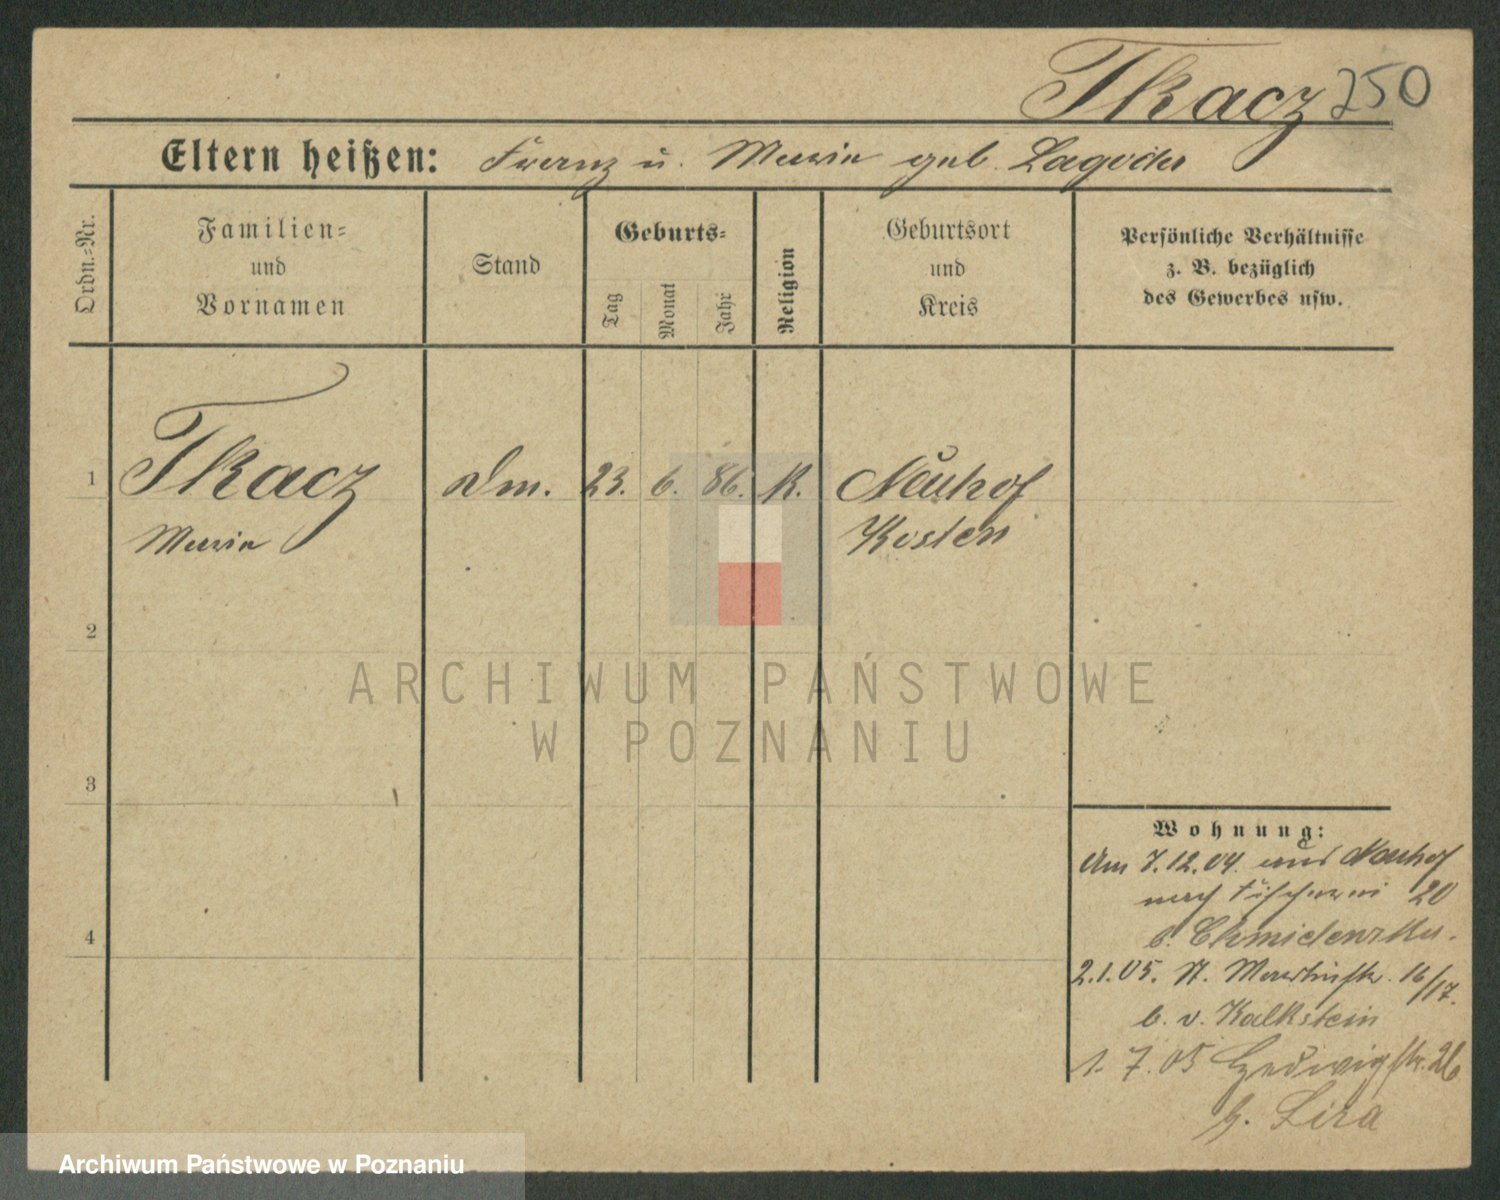 Tkacz 250
Eltern heißen: Franz u. Maria geb. Lagoda
Ordn.=Nr.
Familien=
und
Vornamen
Stand
Geburts=
Tag
Monat
Jahr
Religion
Geburtsort
und
Kreis
Persönliche Verhältnisse
z. B. bezüglich
des Gewerbes usw.
1 Tkacz Dm. 23. 6. 86. K. Neuhof
Maria Kosten
2
3
4
Wohnung:
Am 7.12.04. aus Neuhof
nach Fischerei 20
b.
2.1.05. St. Martinstr. 16/17.
b. v. Kalkstein
1. 7. 05 Hedwigstr. 26
b. Lira
ARCHIWUM PAŃSTWOWE
W POZNANIU
Archiwum Państwowe w Poznaniu